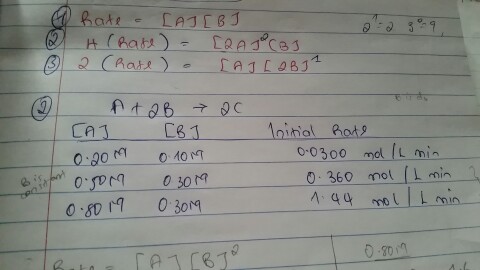 ① Rate = [A] [B]
② 4 (Rate) = [2A]² [B]
2¹=2 3²=9,
③ 2 (Rate) = [A] [2B]¹
② A + 2B → 2C
[A] [B] Initial Rate
0.20M 0.10M 0.0300 mol / L min
B is constant 0.50M 0.30M 0.360 mol / L min
0.80M 0.30M 1.44 mol / L min
Rate = [A] [B]²
0.80M